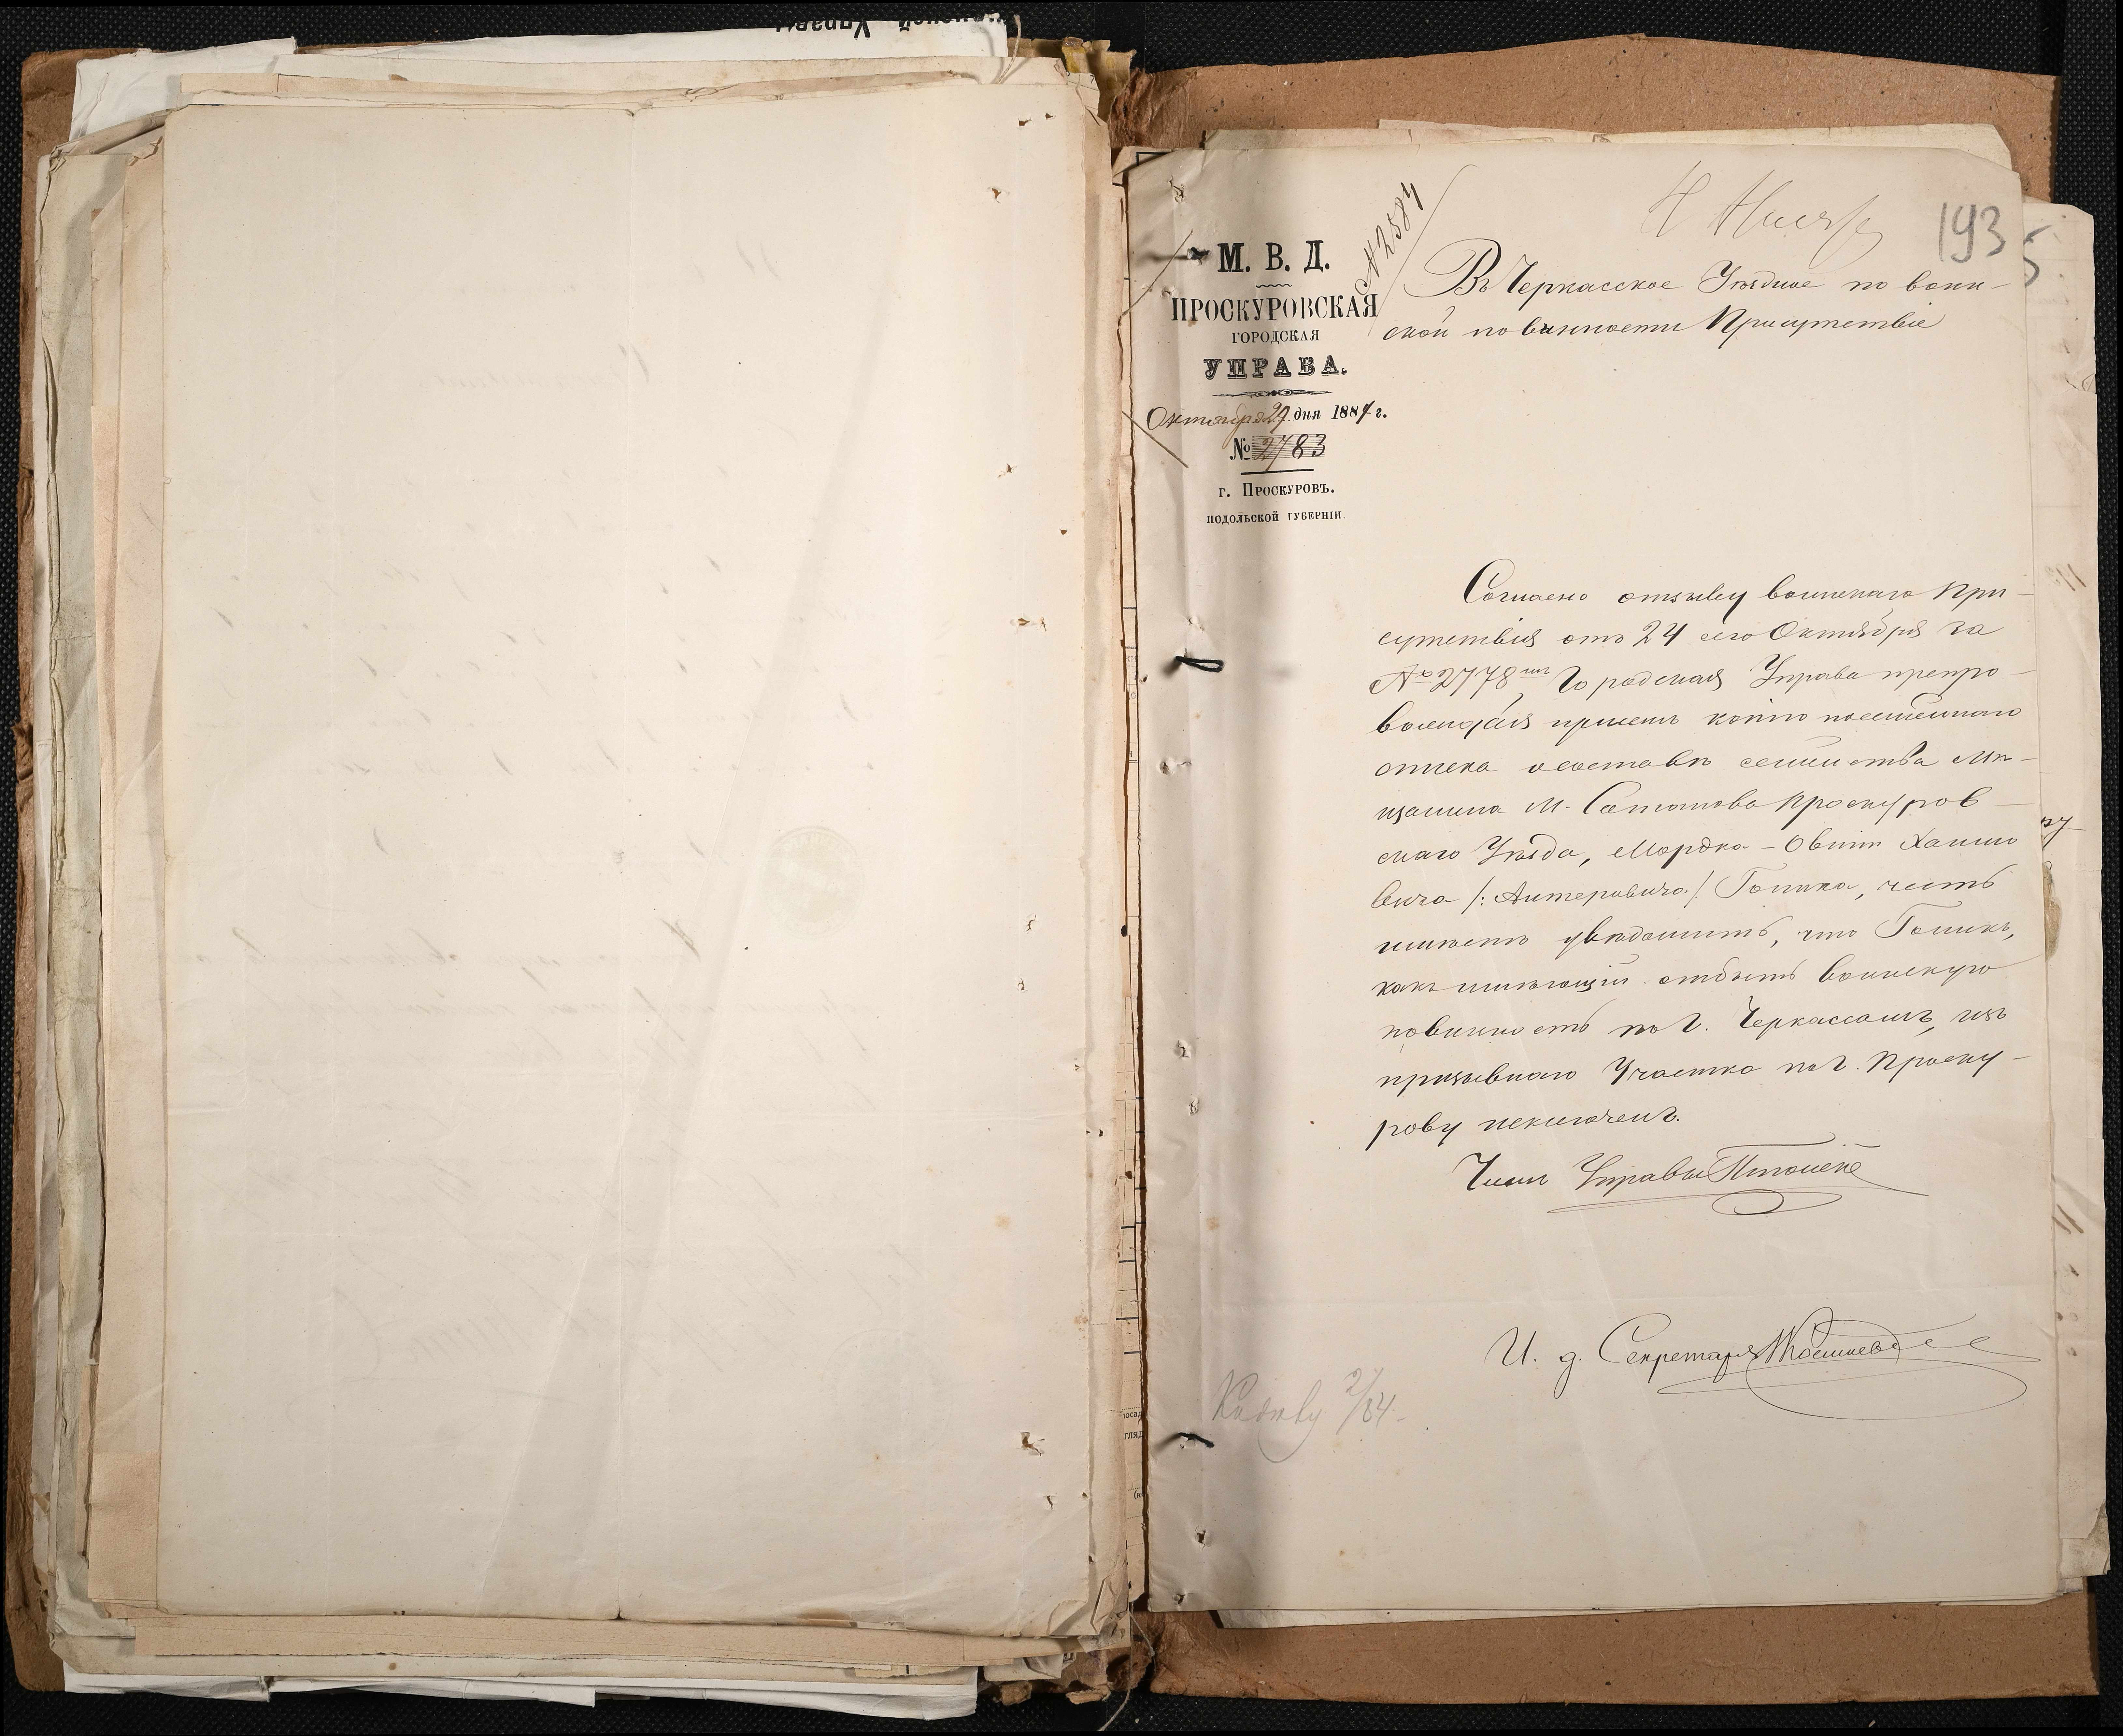 193
№ 2584
М. В. Д.
ПРОСКУРОВСКАЯ
ГОРОДСКАЯ
УПРАВА.
Октября 29 дня 1884 г.
№ 2783
г. Проскуровъ.
ПОДОЛЬСКОЙ ГУБЕРНІИ.
Въ Черкасское Уѣздное по воин-
ской повинности Присутствіе
Согласно отзыву воинскаго При-
сутствія отъ 24 сего Октября за
№ 2778 Городская Управа препро-
вождая при семъ копію посемейнаго
списка о составѣ семейства Мѣ-
щанина м. Сатанова Проскуров-
скаго Уѣзда, Мордка-Овшія Хаимо
вича /: Антеровича :/ Голика, честь
имѣетъ увѣдомить, что Голикъ,
какъ имѣющій отбыть воинскую
повинность по г. Черкассамъ, изъ
призывнаго Участка по г. Проску-
рову исключенъ.
Членъ Управы
И. д. Секретаря